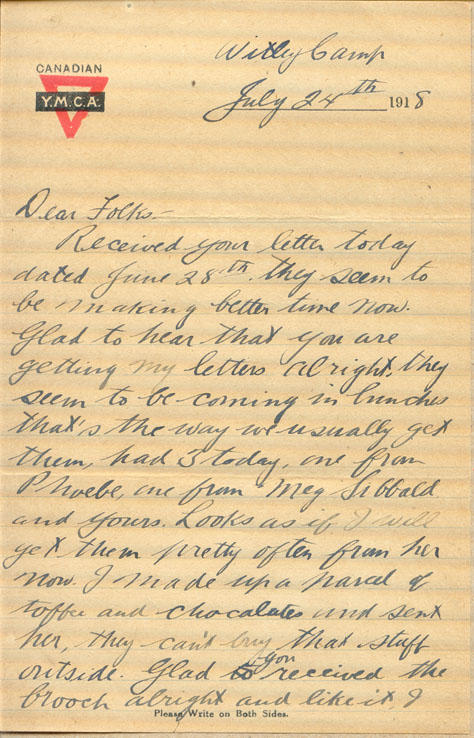 CANADIAN
Y.M.C.A.
Witley Camp
July 24th 1918
Dear Folks—
Received your letter today
dated June 28th. they seem to
be making better time now.
Glad to hear that you are
getting my letters alright, they
seem to be coming in bunches
that's the way we usually get
them, had 3 today, one from
Phoebe, one from Meg Sibbald
and yours. Looks as if I will
get them pretty often from her
now. I made up a parcel of
toffee and chocolates and sent
her, they can't buy that stuff
outside. Glad you received the
brooch alright and like it, I
Please Write on Both Sides.